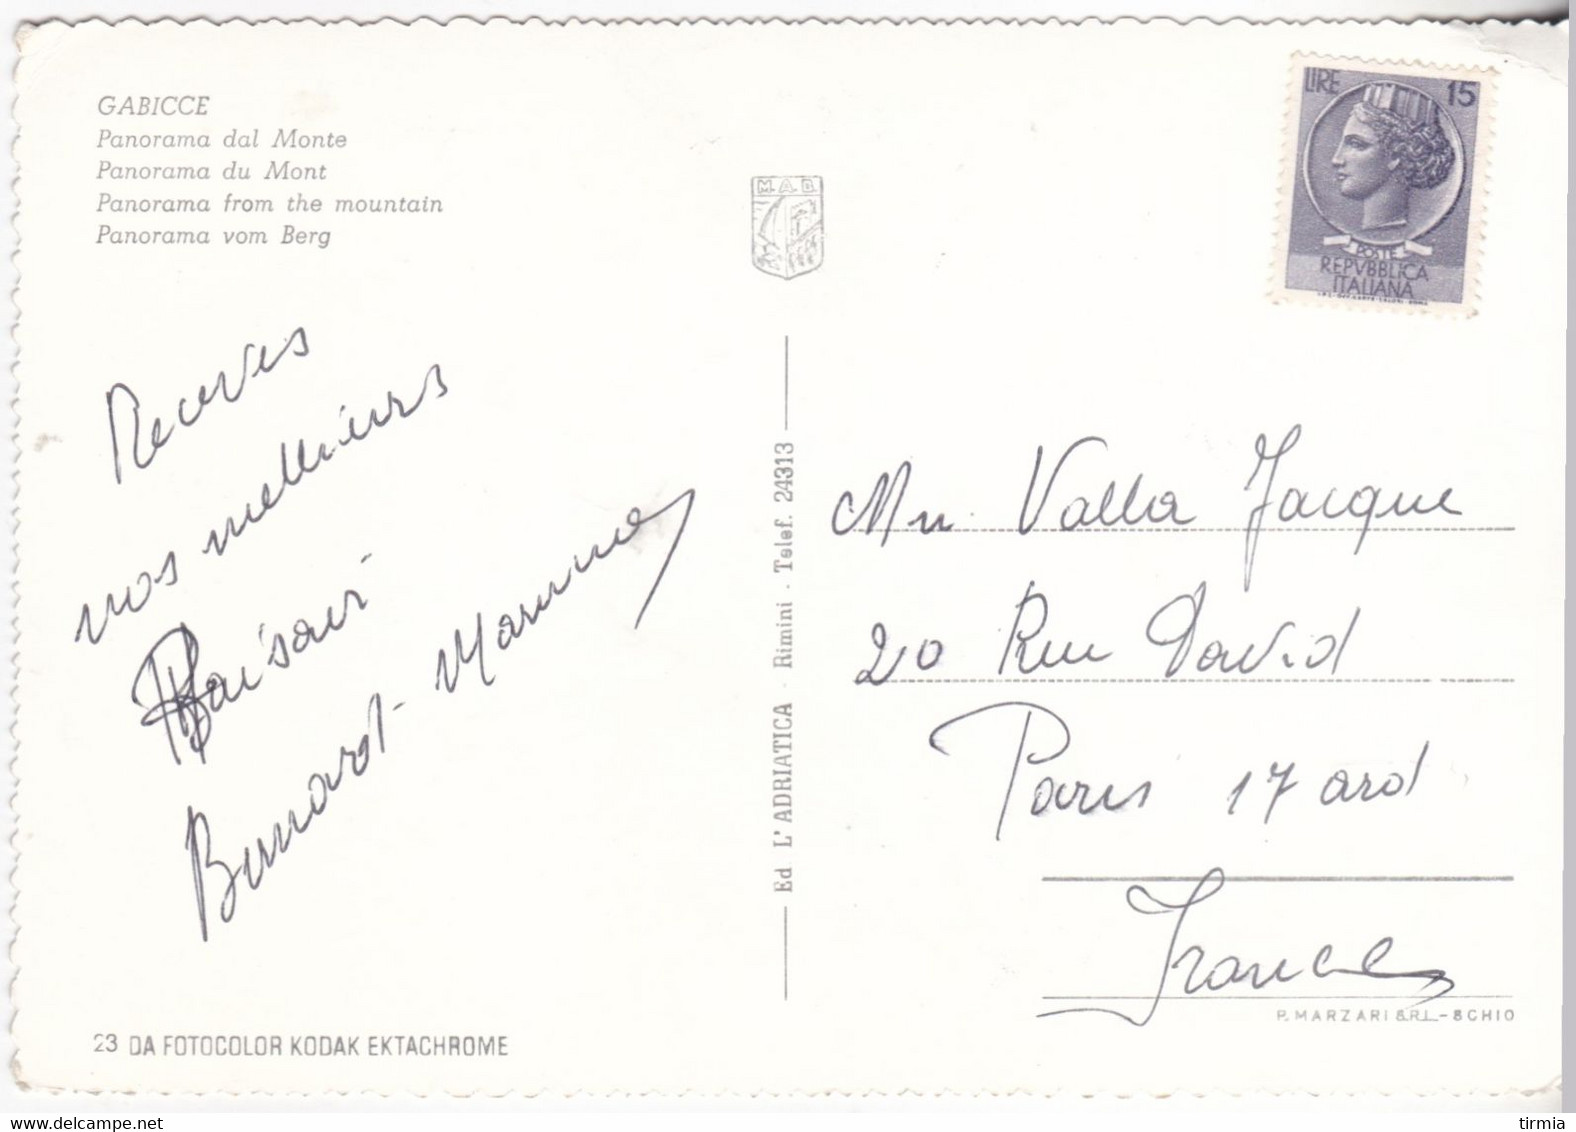 GABICCE
Panorama dal Monte
Panorama du Mont
Panorama from the mountain
Panorama vom Berg
M.A.D.
LIRE 15
POSTE
REPVBBLICA
ITALIANA
Receves
nos meilleurs
Baisers
Bernard-
Ed L'ADRIATICA - Rimini - Telef. 24313
Mr Valla Jacque
20 Rue David
Paris 17 ard
France
P. MARZARI S.R.L. - SCHIO
23 DA FOTOCOLOR KODAK EKTACHROME
www.delcampe.net
tirmia